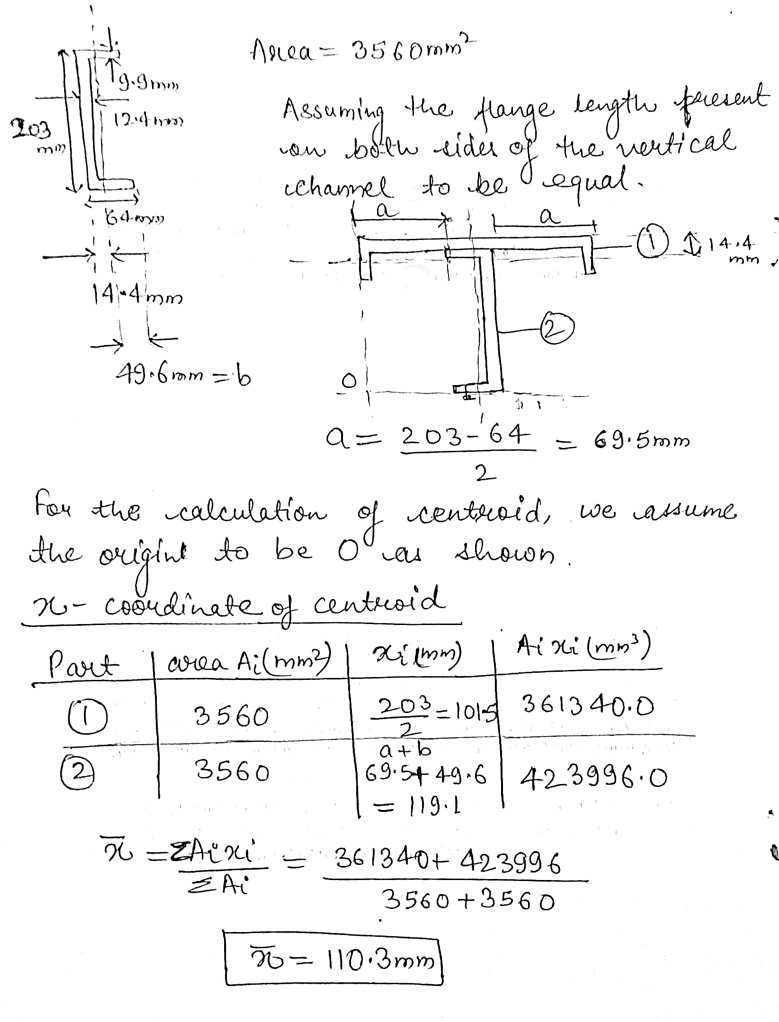 Area = 3560mm²
9.9mm
12.4mm
203
mm
64mm
14.4mm
49.6mm = b
Assuming the flange length present
on both sides of the vertical
channel to be equal.
a
a
①
14.4
mm
②
O
a = 203-64 / 2 = 69.5mm
For the calculation of centroid, we assume
the origint to be O as shown.
x- coordinate of centroid
Part | area Ai(mm²) | xi(mm) | Ai xi (mm³)
① | 3560 | 203/2 = 101.5 | 361340.0
② | 3560 | a+b 69.5+49.6 = 119.1 | 423996.0
x̄ = ΣAi xi / ΣAi = 361340+ 423996 / 3560 + 3560
x̄ = 110.3mm